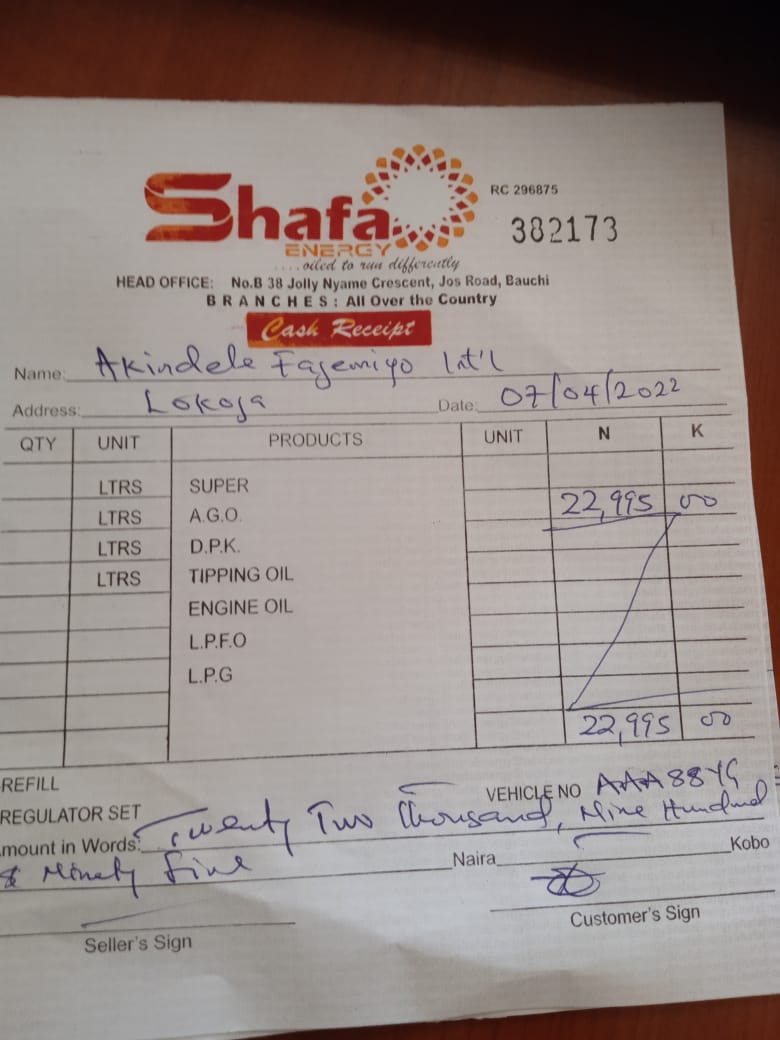 Shafa
ENERGY
....oiled to run differently
RC 296875
382173
HEAD OFFICE: No.B 38 Jolly Nyame Crescent, Jos Road, Bauchi
BRANCHES: All Over the Country
Cash Receipt
Name: Akindele Fajemiyo Int'l
Address: Lokoja Date: 07/04/2022
QTY UNIT PRODUCTS UNIT N K
LTRS SUPER 22,995 00
LTRS A.G.O.
LTRS D.P.K.
LTRS TIPPING OIL
ENGINE OIL
L.P.F.O
L.P.G
22,995 00
REFILL
VEHICLE NO AAA88YG
REGULATOR SET
mount in Words: Twenty Two Thousand, Nine Hundred
& Ninety Five Naira Kobo
Seller's Sign Customer's Sign